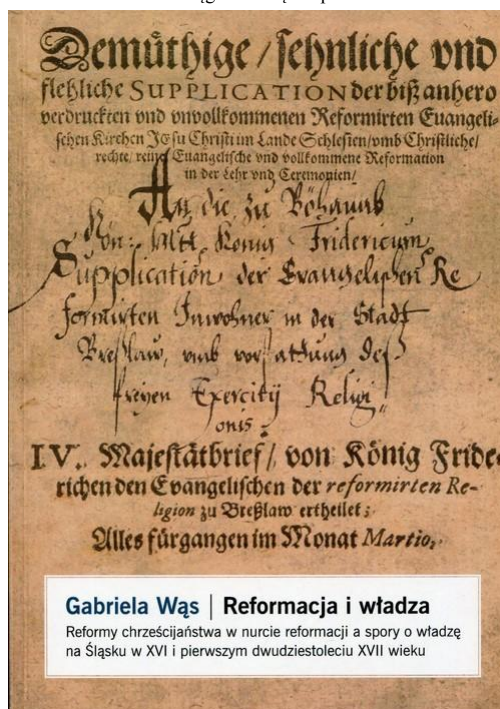 Demüthige / sehnliche vnd
flehliche SUPPLICATION der biß anhero
verdruckten vnd vnvollkommenen Reformirten Euangeli-
schen Kirchen JEsu Christi im Lande Schlesien / vmb Christliche /
rechte / reine Euangelische vnd vollkommene Reformation
in der Lehr vnd Ceremonien /
An die zu Böhaimb
Kön: Mtt. König Fridericum
Supplication der Evangelischen Re
formirten Inwohner in der Stadt
Breßlaw, vmb verstattung deß
freyen Exercitij Religi
onis
IV. Majestätbrief / von König Fride-
richen den Evangelischen der reformirten Re-
ligion zu Breßlaw ertheilet ;
Alles fürgangen im Monat Martio,
Gabriela Wąs | Reformacja i władza
Reformy chrześcijaństwa w nurcie reformacji a spory o władzę
na Śląsku w XVI i pierwszym dwudziestoleciu XVII wieku